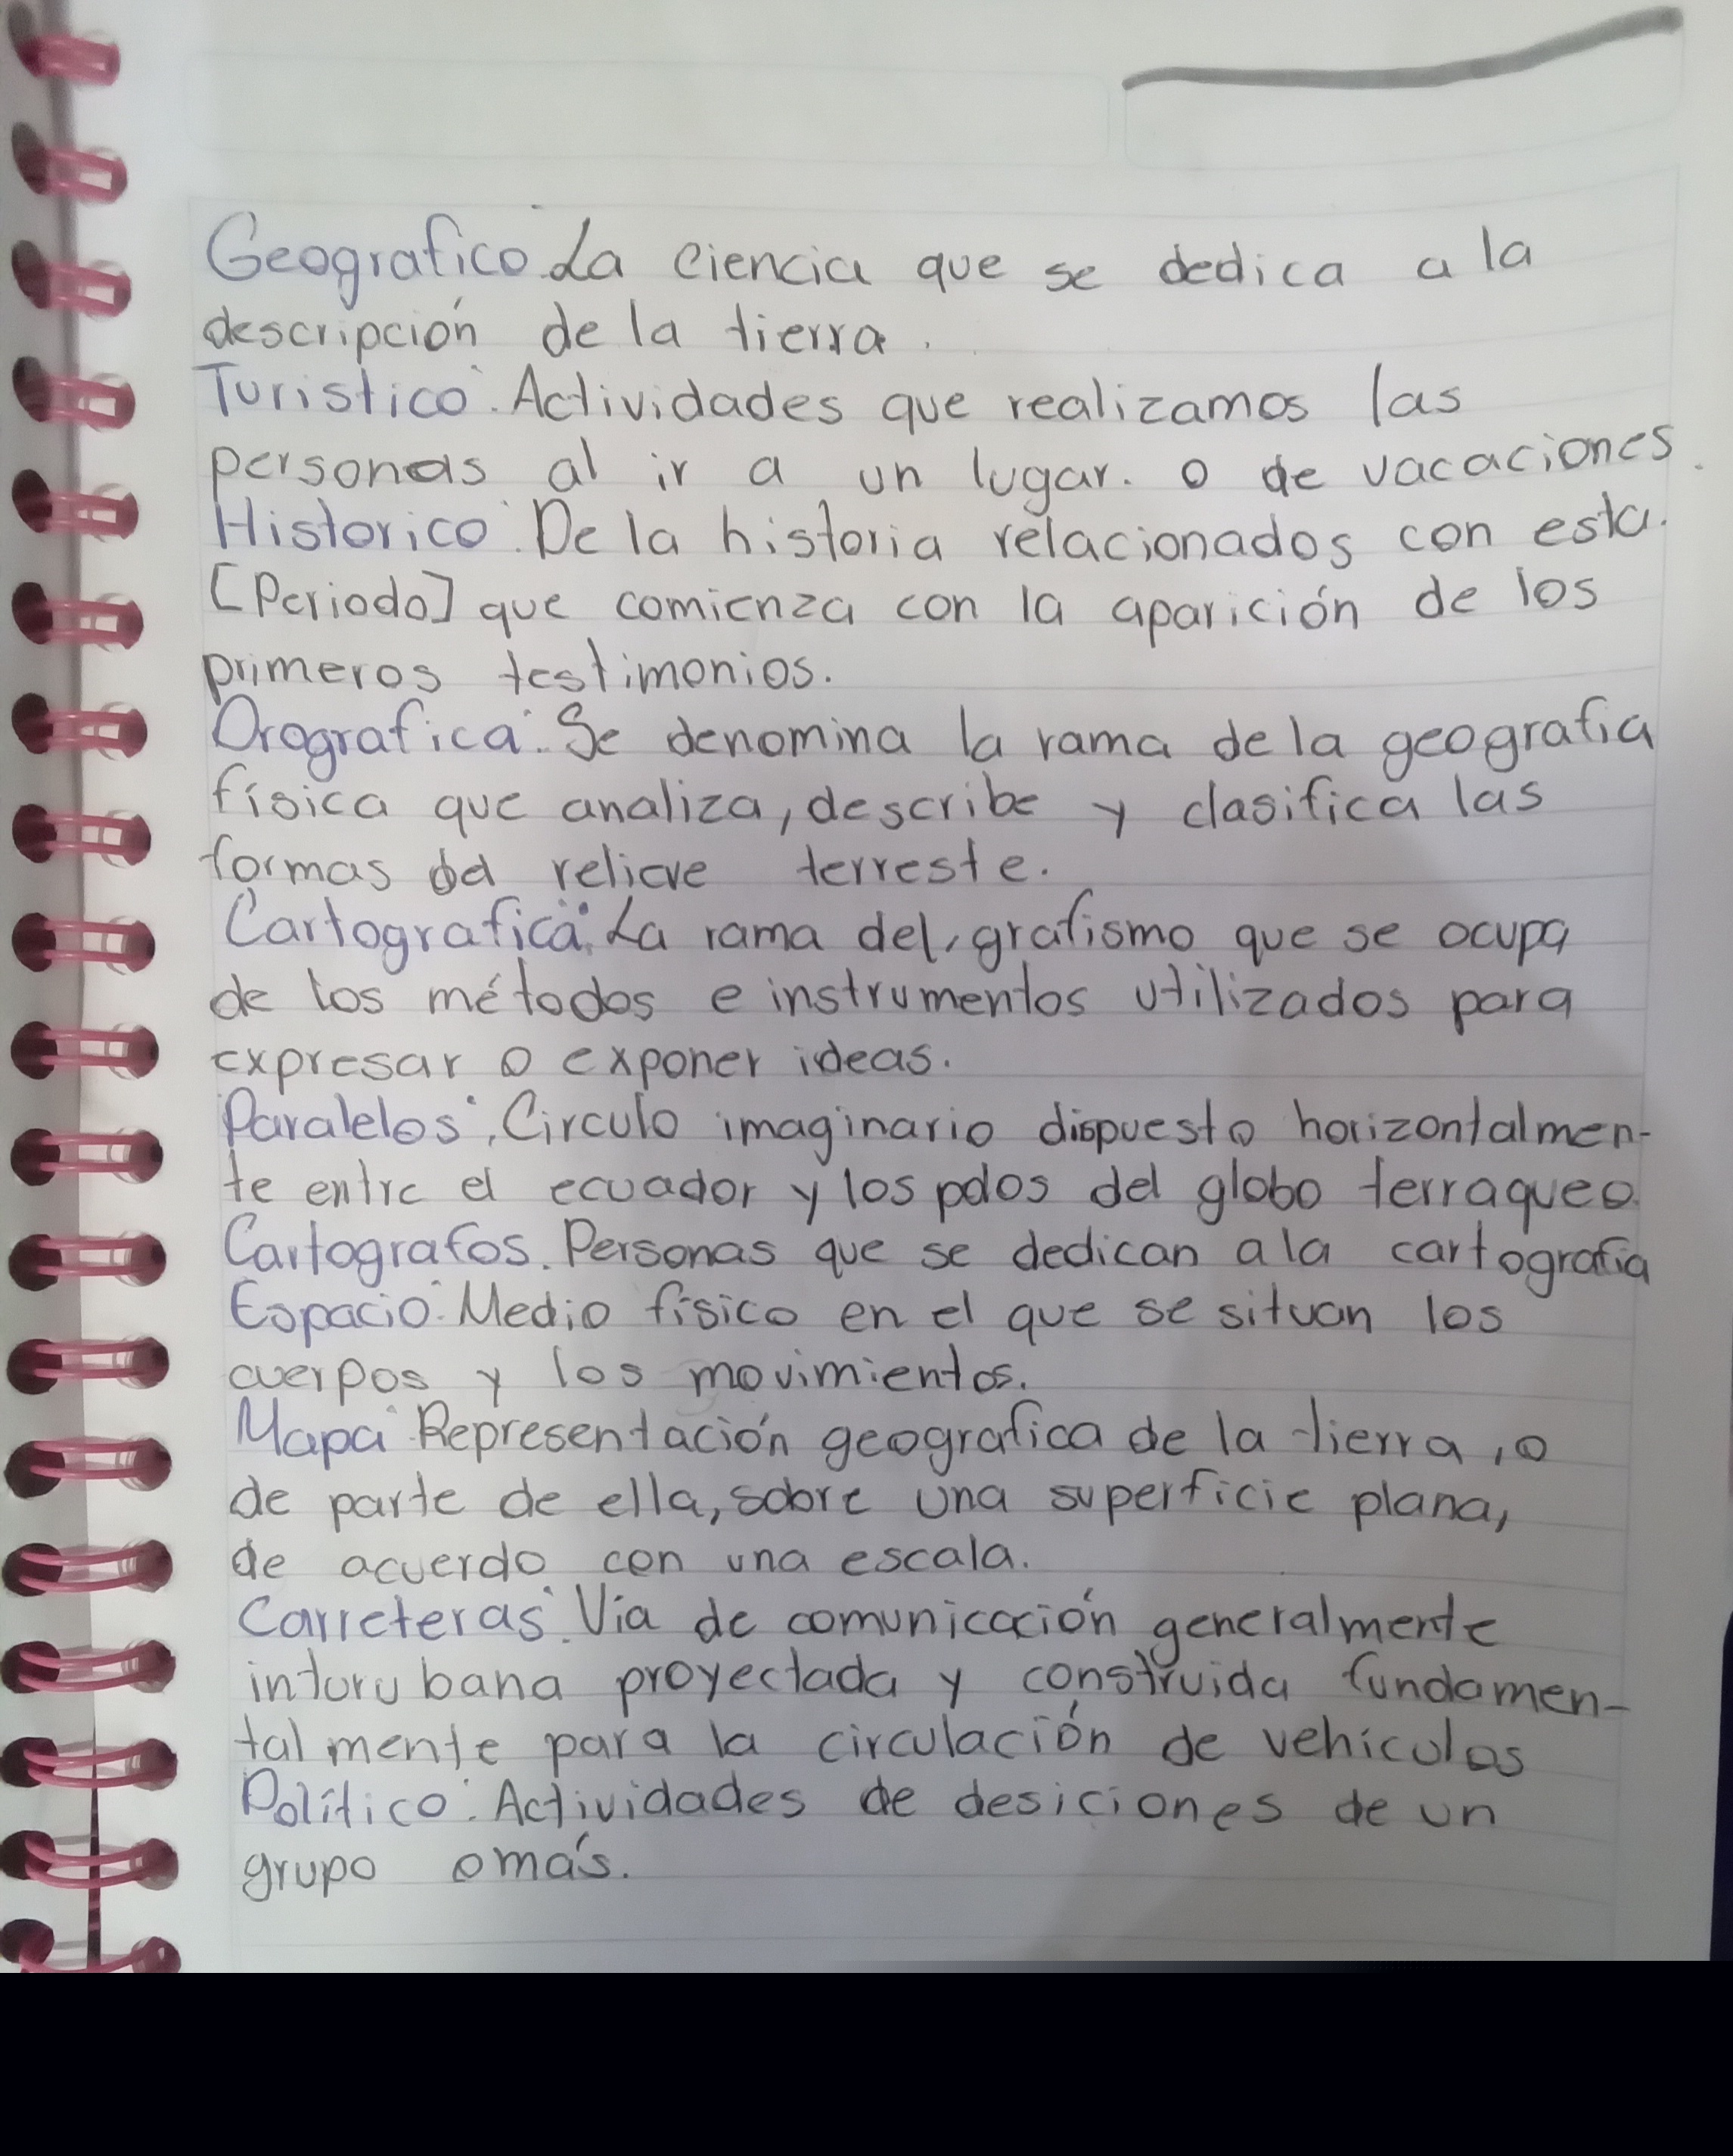 Geografico: La ciencia que se dedica a la
descripción de la tierra.
Turistico: Actividades que realizamos las
personas al ir a un lugar. o de vacaciones.
Historico: De la historia relacionados con esta.
[Periodo] que comienza con la aparición de los
primeros testimonios.
Orografica: Se denomina la rama de la geografia
física que analiza, describe y clasifica las
formas del relieve terreste.
Cartografica: La rama del, grafismo que se ocupa
de los métodos e instrumentos utilizados para
expresar o exponer ideas.
Paralelos: Circulo imaginario dispuesto horizontalmen-
te entre el ecuador y los polos del globo terraqueo.
Cartografos. Personas que se dedican a la cartografia
Espacio: Medio físico en el que se situan los
cuerpos y los movimientos.
Mapa: Representación geografica de la tierra, o
de parte de ella, sobre una superficie plana,
de acuerdo con una escala.
Carreteras: Via de comunicación generalmente
inturubana proyectada y construida fundamen-
talmente para la circulación de vehiculos
Político: Actividades de desiciones de un
grupo o más.